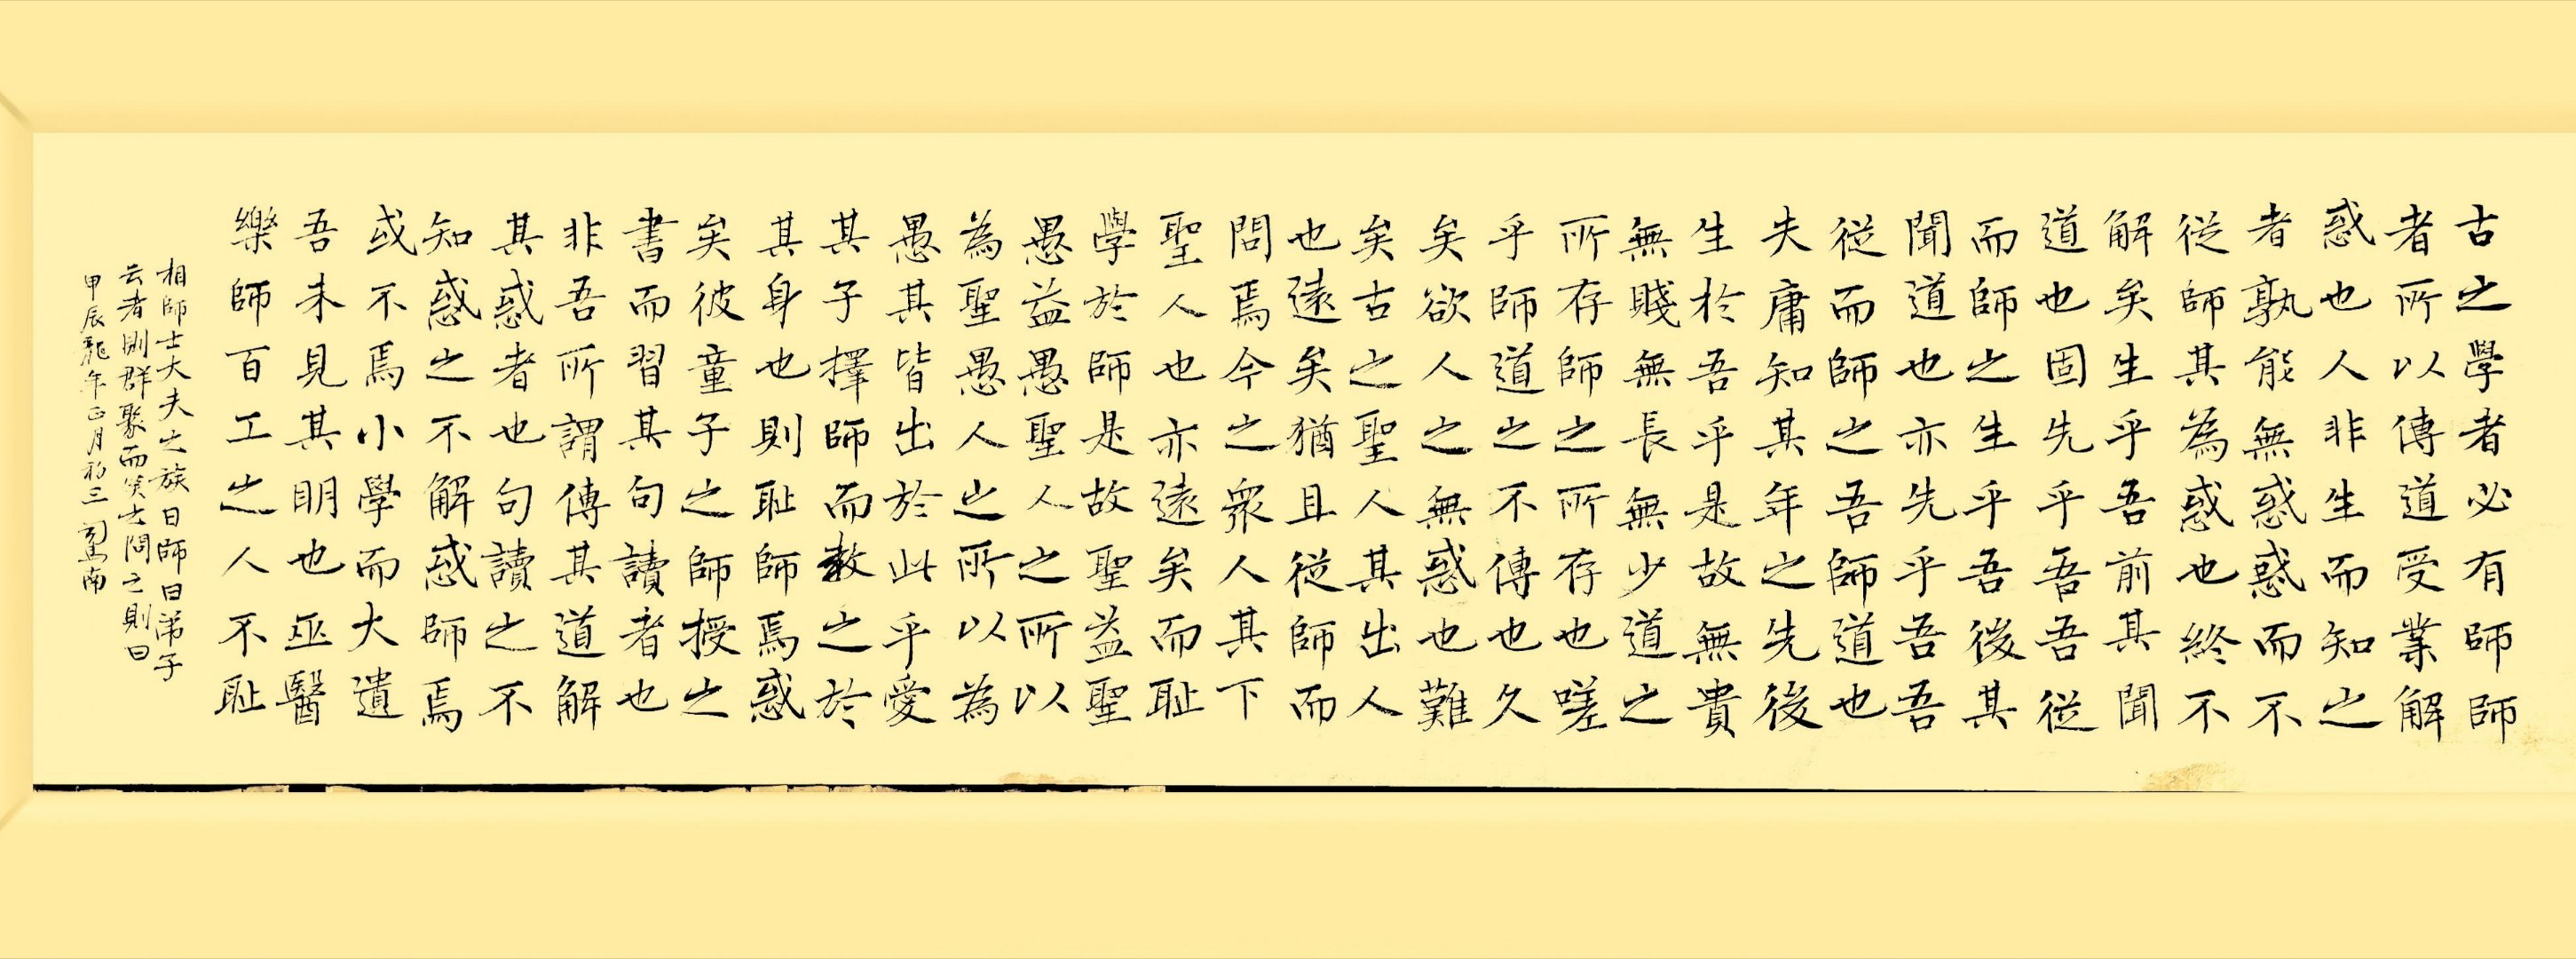 古之學者必有師師
者所以傳道受業解
惑也人非生而知之
者孰能無惑惑而不
從師其為惑也終不
解矣生乎吾前其聞
道也固先乎吾吾從
而師之生乎吾後其
聞道也亦先乎吾吾
從而師之吾師道也
夫庸知其年之先後
生於吾乎是故無貴
無賤無長無少道之
所存師之所存也嗟
乎師道之不傳也久
矣欲人之無惑也難
矣古之聖人其出人
也遠矣猶且從師而
問焉今之眾人其下
聖人也亦遠矣而耻
學於師是故聖益聖
愚益愚聖人之所以
為聖愚人之所以為
愚其皆出於此乎愛
其子擇師而教之於
其身也則耻師焉惑
矣彼童子之師授之
書而習其句讀者也
非吾所謂傳其道解
其惑者也句讀之不
知惑之不解惑師焉
或不焉小學而大遺
吾未見其明也巫醫
樂師百工之人不耻
相師士大夫之族曰師曰弟子
云者則群聚而笑之問之則曰
甲辰龍年正月初三 司馬南